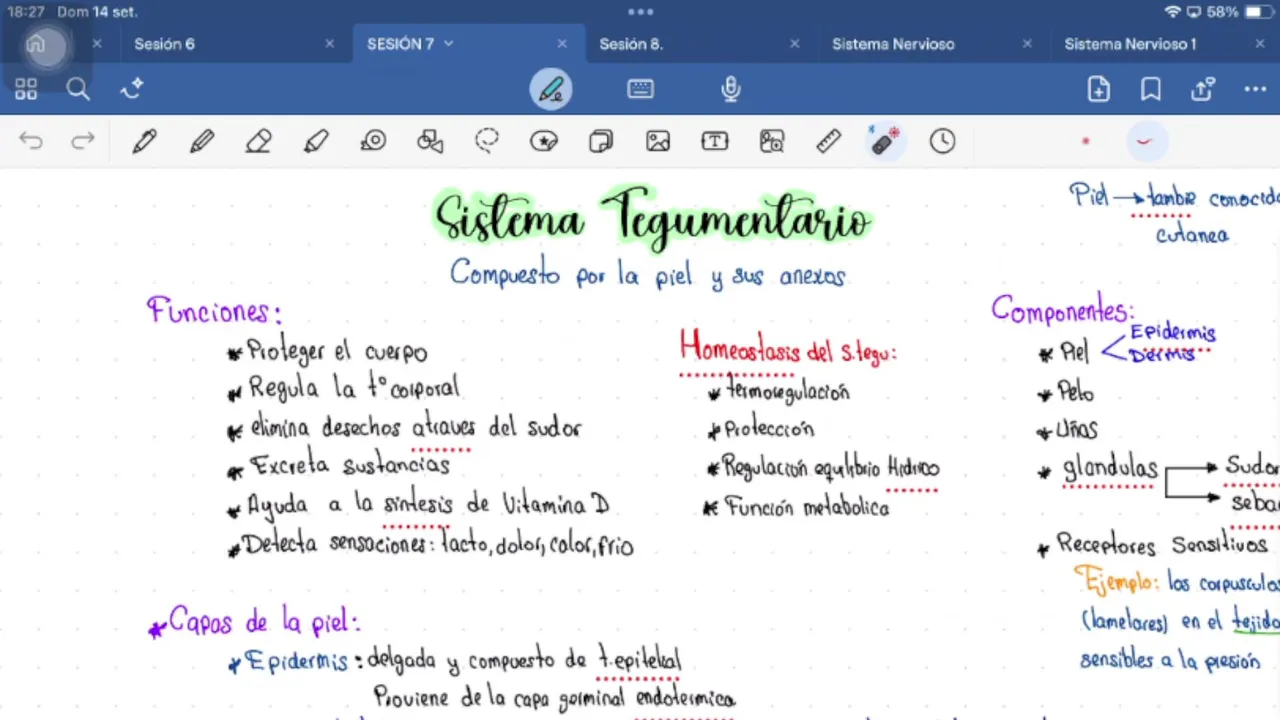 18:27 Dom 14 set.
58%
Sesión 6
SESIÓN 7
Sesión 8.
Sistema Nervioso
Sistema Nervioso 1
Sistema Tegumentario
Compuesto por la piel y sus anexos
Piel → tambie conocida
cutanea
Funciones:
* Proteger el cuerpo
* Regula la t° corporal
* elimina desechos atraves del sudor
* Excreta sustancias
* Ayuda a la sintesis de Vitamina D
* Detecta sensaciones: tacto, dolor, calor, frio
Homeostasis del s.tegu:
* termoregulación
* Protección
* Regulación equlibrio Hidrico
* Función metabolica
Componentes:
* Piel
Epidermis
Dermis
* Pelo
* Uñas
* glandulas
Sudor
seba
* Receptores Sensitivos
Ejemplo: los corpusculos
(lamelares) en el tejido
sensibles a la presión
* Capas de la piel:
* Epidermis: delgada y compuesto de t.epitelial
Proviene de la capa germinal endotermica